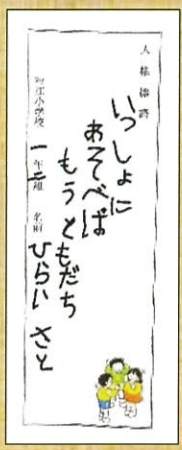 人権標語
いっしょに
あそべば
もうともだち
一年二組 名前 ひらい さと